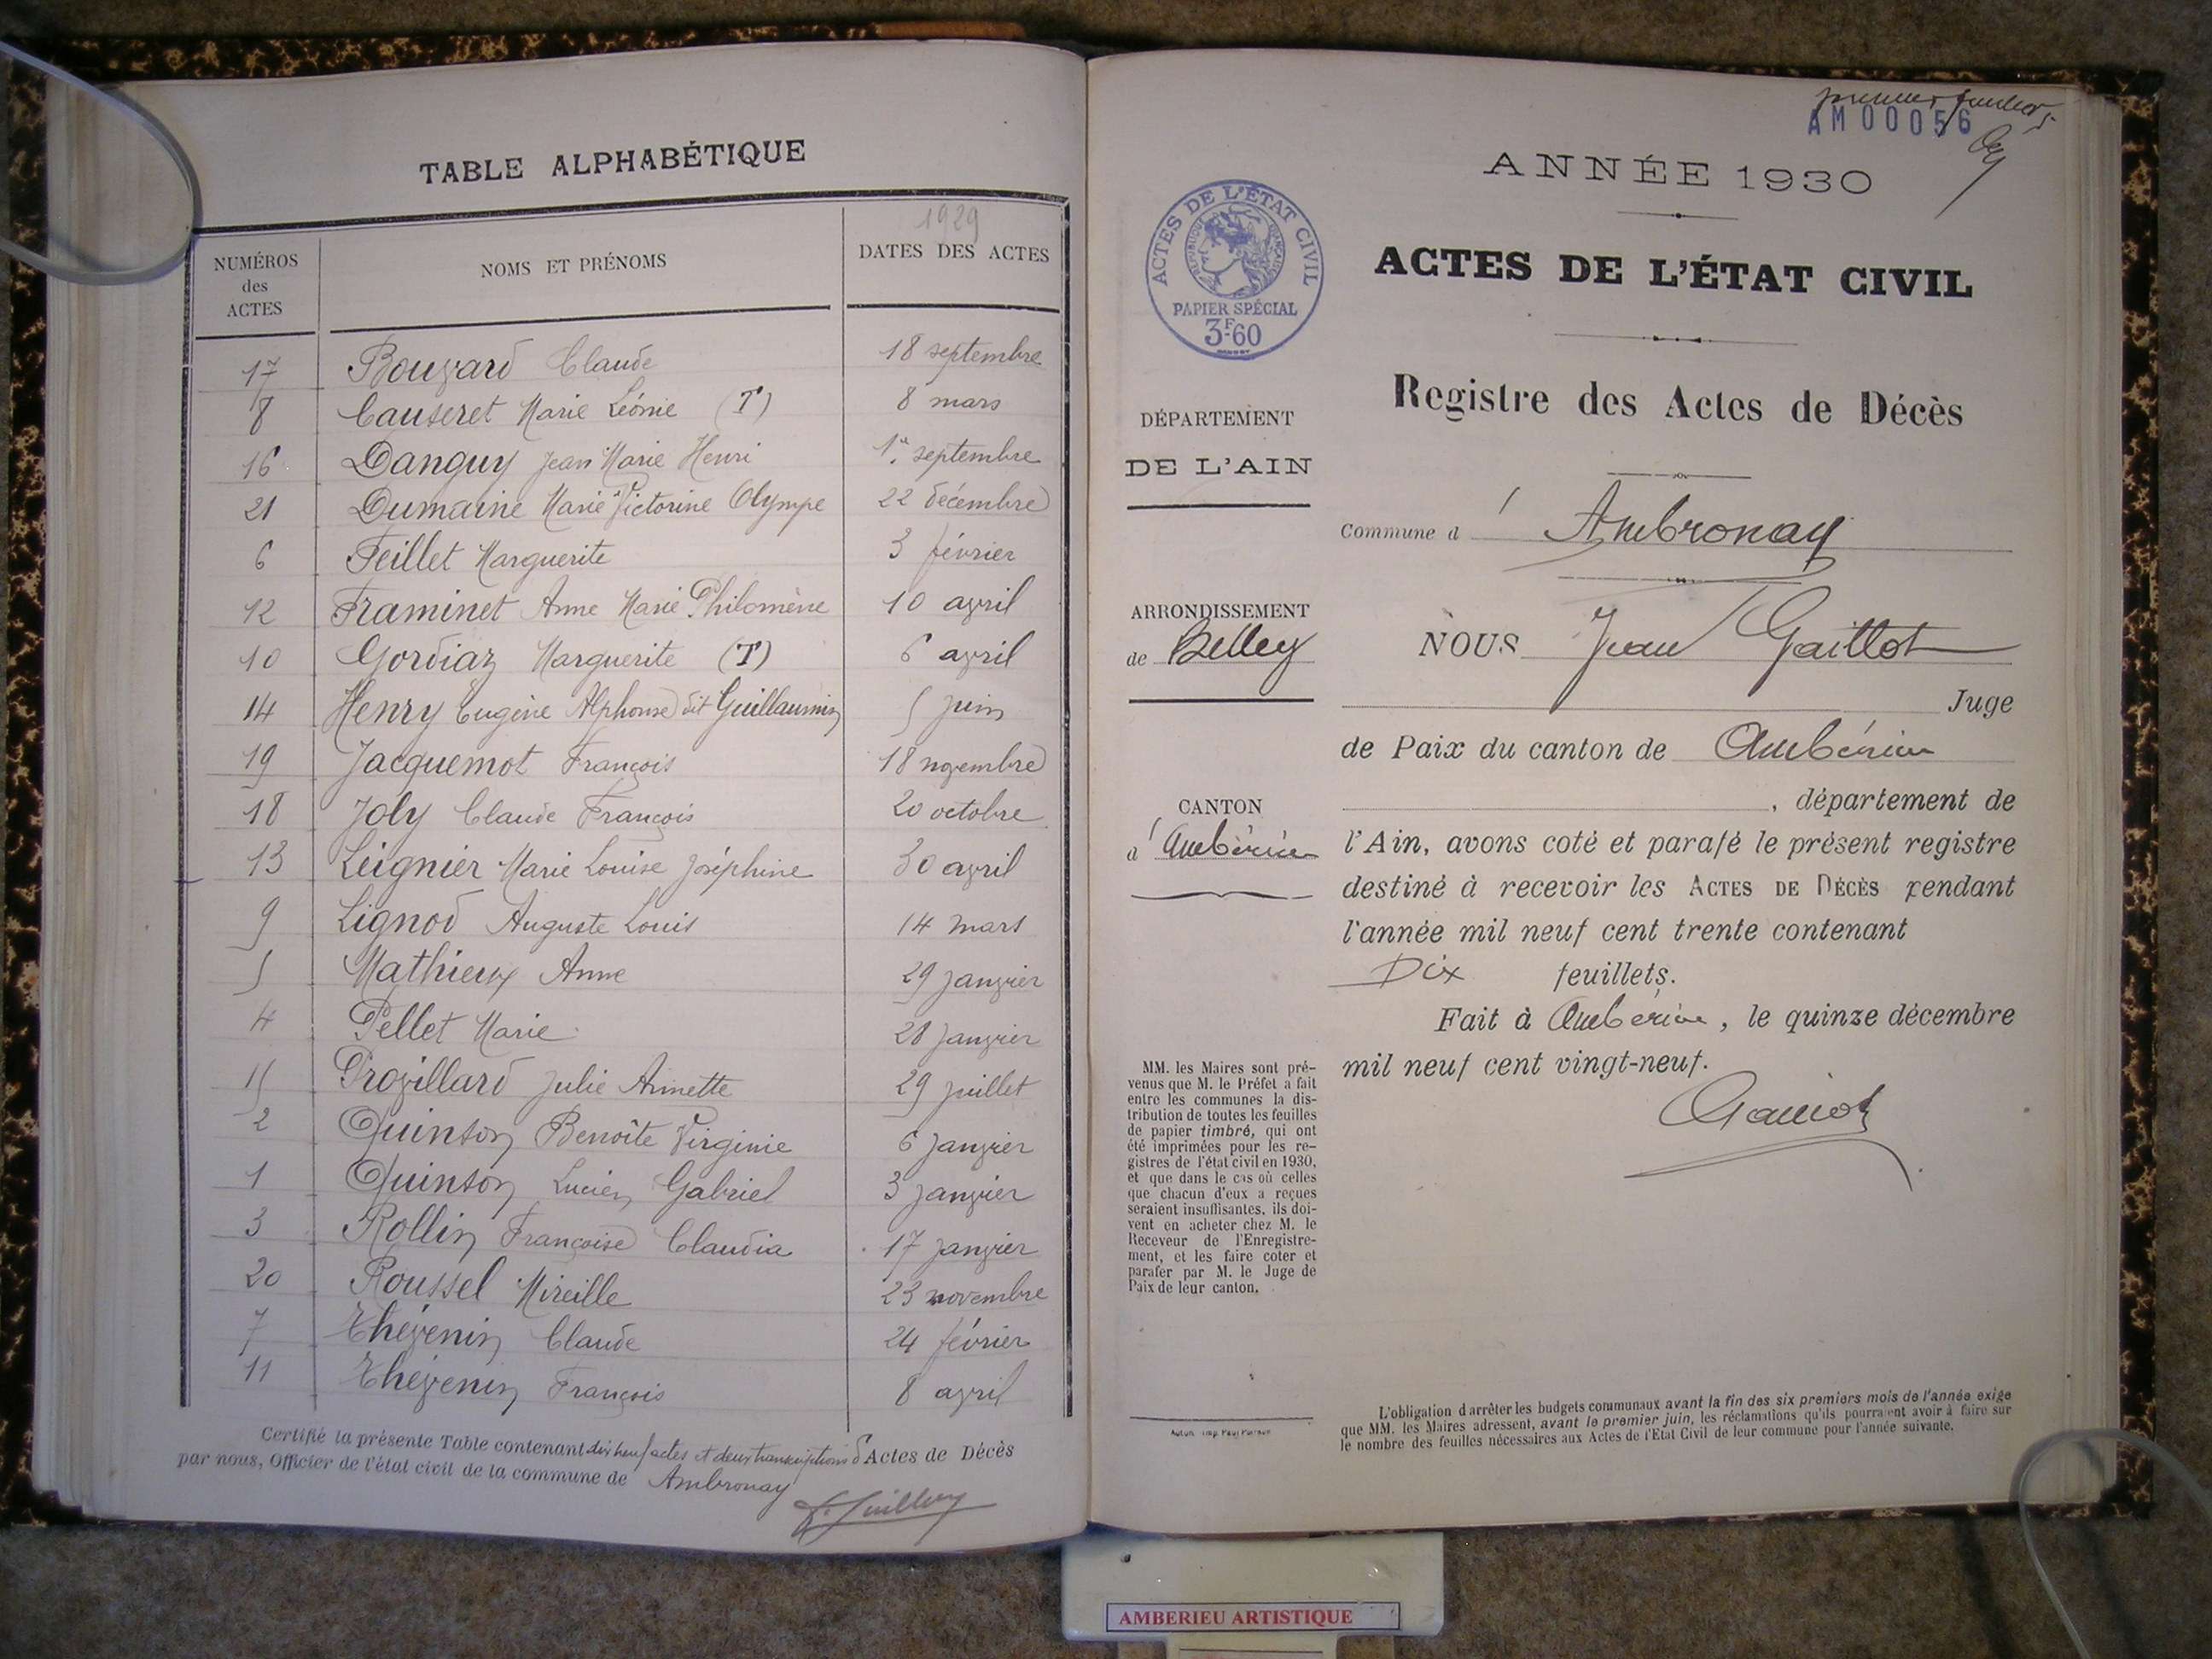 TABLE ALPHABÉTIQUE
1929
NUMÉROS des ACTES NOMS ET PRÉNOMS DATES DES ACTES
17 Bouvard Claude 18 septembre
8 Causeret Marie Léonie (T) 8 mars
16 Danguy Jean Marie Henri 1er septembre
21 Dumaine Marie Victorine Olympe 22 décembre
6 Feillet Marguerite 3 février
12 Framinet Anne Marie Philomène 10 avril
10 Gordiaz Marguerite (T) 6 avril
14 Henry Eugène Alphonse dit Guillaumin 5 juin
19 Jacquemot François 18 novembre
18 Joly Claude François 20 octobre
13 Leignier Marie Louise Joséphine 30 avril
9 Lignod Auguste Louis 14 mars
5 Mathieux Anne 29 janvier
4 Pellet Marie 28 janvier
15 Provillard Julie Annette 29 juillet
2 Quinson Benoîte Virginie 6 janvier
1 Quinson Lucien Gabriel 3 janvier
3 Rollin Françoise Claudia 17 janvier
20 Roussel Mireille 23 novembre
7 Thévenin Claude 24 février
11 Thévenin François 8 avril
Certifié la présente Table contenant dix neuf actes et deux transcriptions d'Actes de Décès
par nous, Officier de l'état civil de la commune de Ambronay
premier feuillet
AM00056
ANNÉE 1930
ACTES DE L'ÉTAT CIVIL
RÉPUBLIQUE FRANÇAISE
PAPIER SPÉCIAL
3F.60
ACTES DE L'ÉTAT CIVIL
Registre des Actes de Décès
DÉPARTEMENT
DE L'AIN
Commune d' Ambronay
ARRONDISSEMENT
de Belley
NOUS Jean Gaillot
Juge
de Paix du canton de Ambérieu
CANTON
d'Ambérieu
, département de
l'Ain, avons coté et parafé le présent registre
destiné à recevoir les ACTES DE DÉCÈS pendant
l'année mil neuf cent trente contenant
Dix feuillets.
Fait à Ambérieu, le quinze décembre
mil neuf cent vingt-neuf.
MM. les Maires sont pré-
venus que M. le Préfet a fait
entre les communes la dis-
tribution de toutes les feuilles
de papier timbré, qui ont
été imprimées pour les re-
gistres de l'état civil en 1930,
et que dans le cas où celles
que chacun d'eux a reçues
seraient insuffisantes, ils doi-
vent en acheter chez M. le
Receveur de l'Enregistre-
ment, et les faire coter et
parafer par M. le Juge de
Paix de leur canton.
L'obligation d'arrêter les budgets communaux avant la fin des six premiers mois de l'année exige
que MM. les Maires adressent, avant le premier juin, les réclamations qu'ils pourraient avoir à faire sur
le nombre des feuilles nécessaires aux Actes de l'Etat Civil de leur commune pour l'année suivante.
AMBERIEU ARTISTIQUE